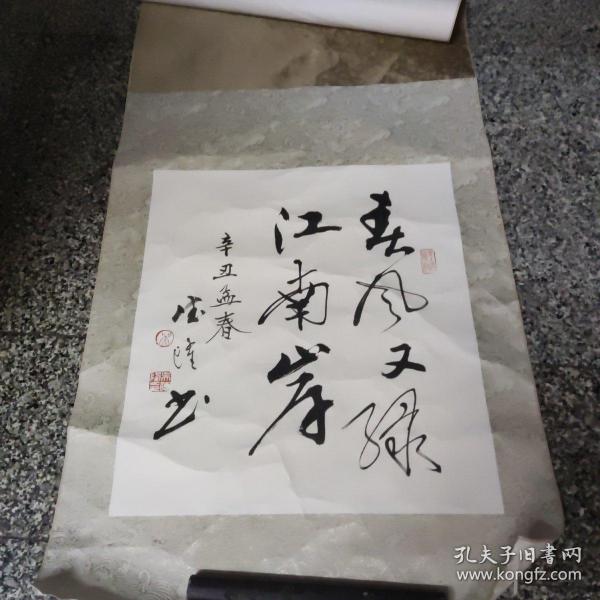 春风又绿
江南岸
辛丑孟春
书
孔夫子旧書网
www.kongfz.com